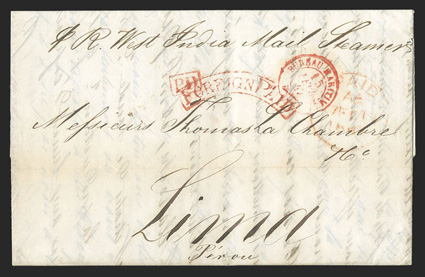 p R. West India Mail Steamer
P.D.
FOREIGN PAID
BUREAU MARITIME
PAID
Messieurs Thomas La Chambre
& Co
Lima
Pérou